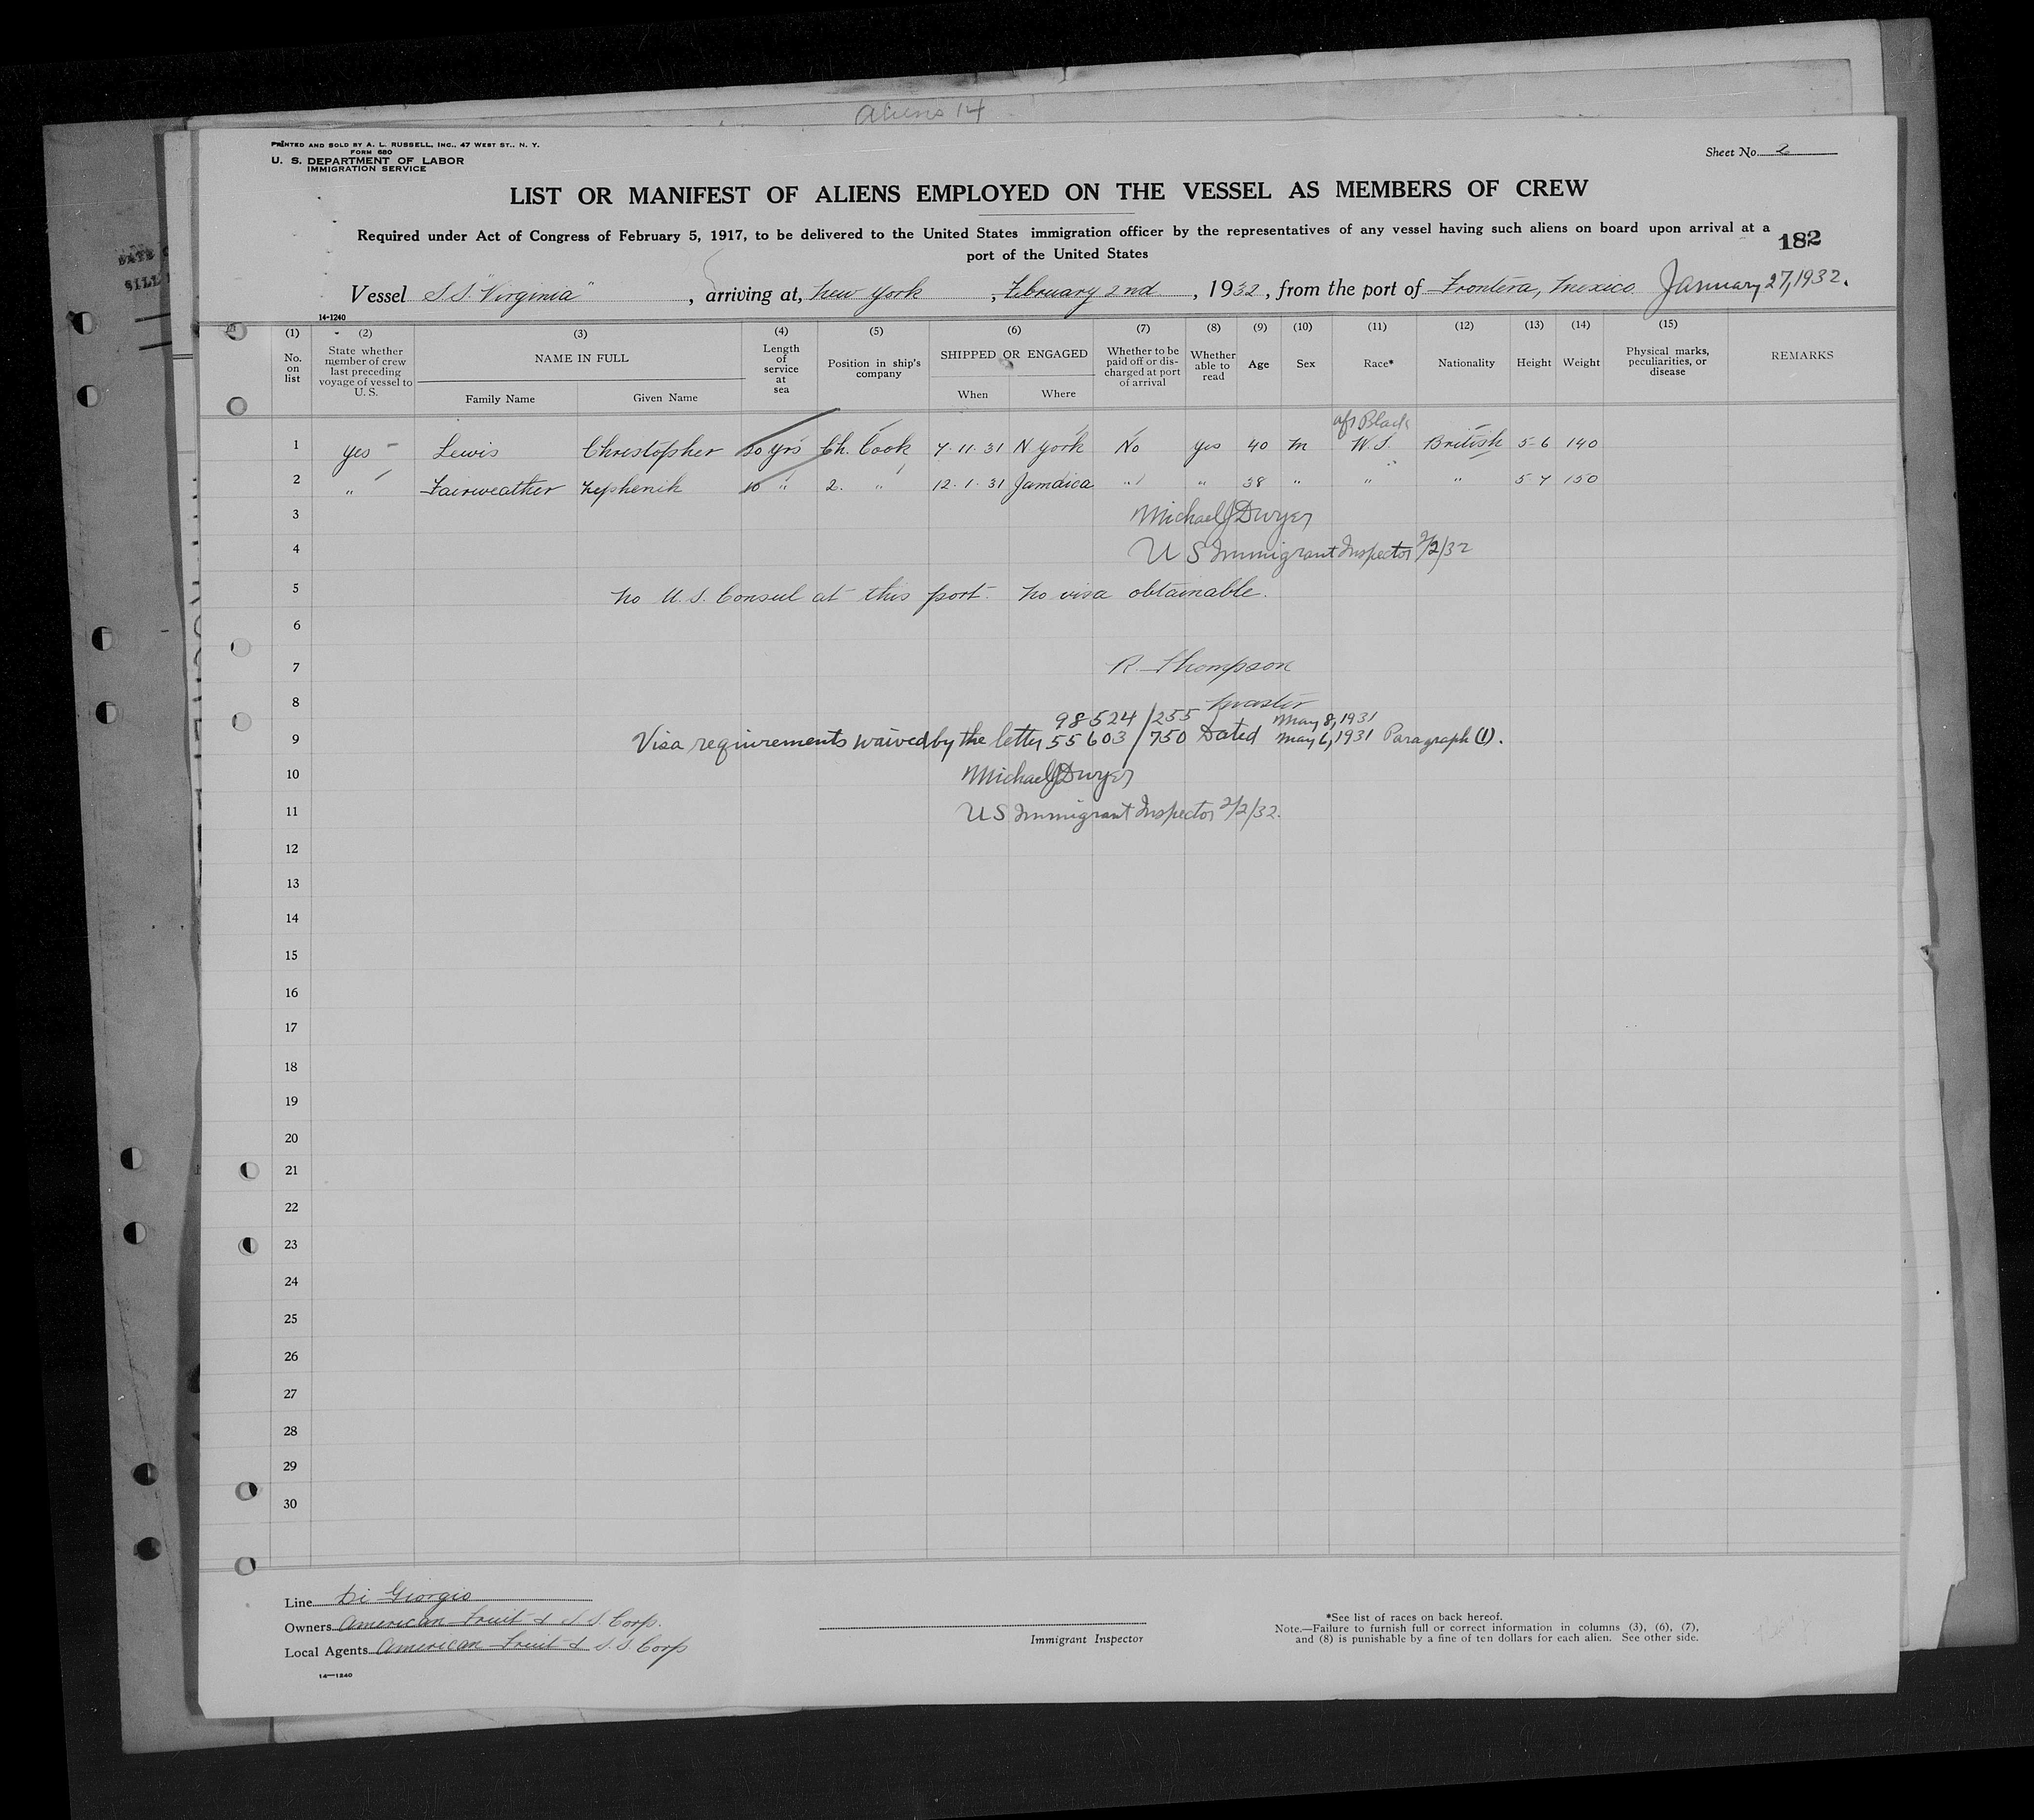 Aliens 14
PRINTED AND SOLD BY A. L. RUSSELL, INC., 47 WEST ST., N. Y.
FORM 680
U. S. DEPARTMENT OF LABOR
IMMIGRATION SERVICE
Sheet No. 2
LIST OR MANIFEST OF ALIENS EMPLOYED ON THE VESSEL AS MEMBERS OF CREW
Required under Act of Congress of February 5, 1917, to be delivered to the United States immigration officer by the representatives of any vessel having such aliens on board upon arrival at a
port of the United States
182
Vessel S.S. "Virginia", arriving at, New York, February 2nd, 1932, from the port of Frontera, Mexico. January 27, 1932.
14-1240
(1) (2) (3) (4) (5) (6) (7) (8) (9) (10) (11) (12) (13) (14) (15)
No. on list
State whether member of crew last preceding voyage of vessel to U. S.
NAME IN FULL
Family Name
Given Name
Length of service at sea
Position in ship's company
SHIPPED OR ENGAGED
When
Where
Whether to be paid off or discharged at port of arrival
Whether able to read
Age
Sex
Race*
Nationality
Height
Weight
Physical marks, peculiarities, or disease
REMARKS
afr Black
1 Yes Lewis Christopher yrs Ch. Cook 7.11.31 N York No Yes 40 M W.I. British 5-6 140
2 " Fairweather 10 " 2. " 12.1.31 Jamaica " " 38 " " " 5 7 150
3 Michael J Dwyer
4 U S Immigrant Inspector 2/2/32
5 No U.S. Consul at this port. No visa obtainable.
6
7 R. Thompson
8 Master
98524/255 May 8, 1931
9 Visa requirements waived by the letter 55603/750 Dated May 6, 1931 Paragraph (1).
10 Michael J Dwyer
11 U S Immigrant Inspector 2/2/32.
12
13
14
15
16
17
18
19
20
21
22
23
24
25
26
27
28
29
30
Line Di Giorgio
Owners American Fruit & S.S. Corp.
Local Agents American Fruit & S.S Corp
14—1240
Immigrant Inspector
*See list of races on back hereof.
Note.—Failure to furnish full or correct information in columns (3), (6), (7),
and (8) is punishable by a fine of ten dollars for each alien. See other side.